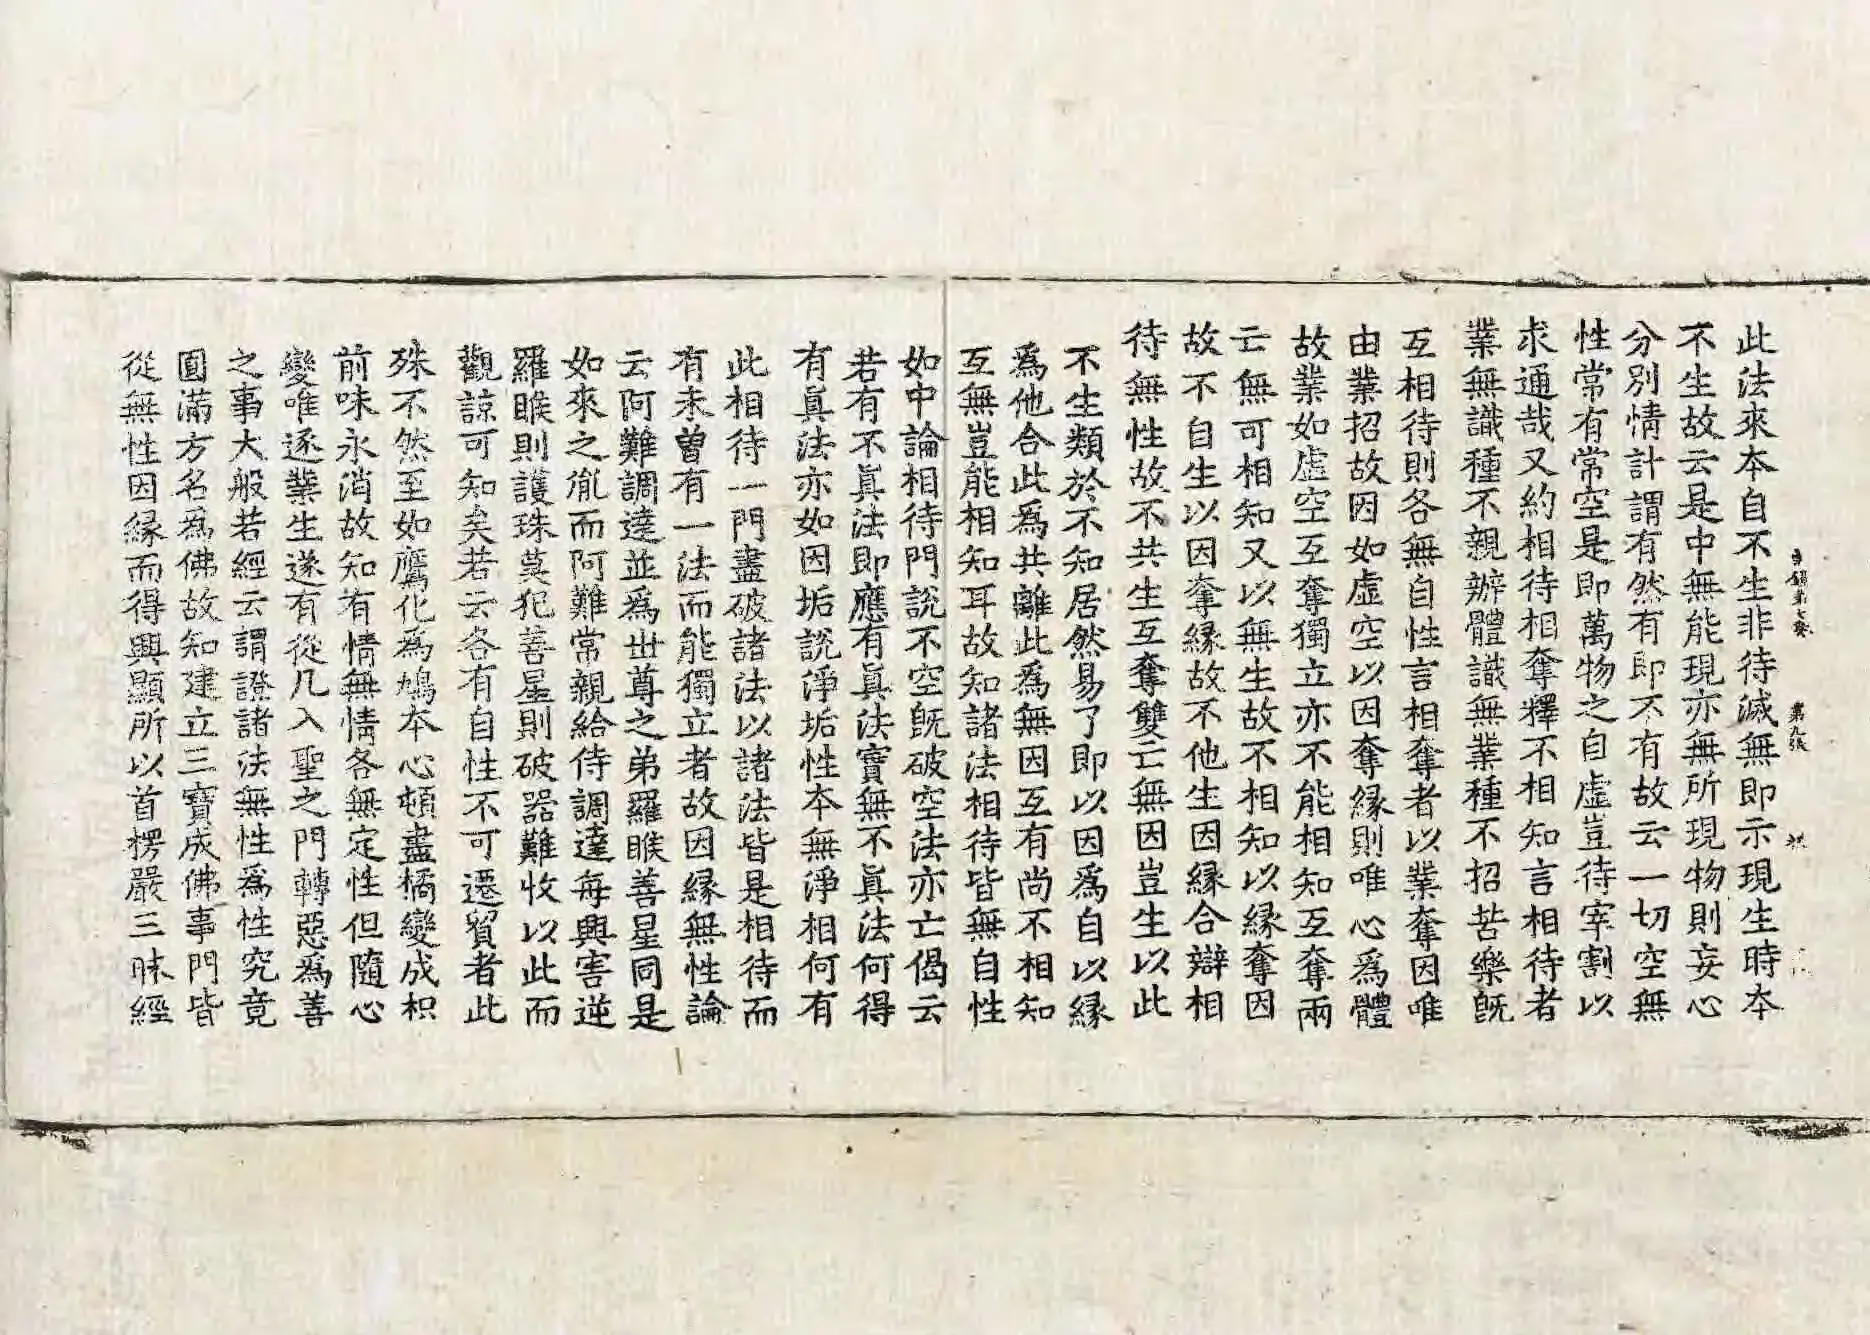 此法來本自不生非待滅無即示現生時本
不生故云是中無能現亦無所現物則妄心
分別情計謂有然有即不有故云一切空無
性常有常空是即萬物之自虛豈待宰割以
求通哉又約相待相奪釋不相知言相待者
業無識種不親辦體識無業種不招苦樂旣
互相待則各無自性言相奪者以業奪因唯
由業招故因如虛空以因奪緣則唯心爲體
故業如虛空互奪獨立亦不能相知互奪兩
亡無可相知又以無生故不相知以緣奪因
故不自生以因奪緣故不他生因緣合辯相
待無性故不共生互奪雙亡無因豈生以此
不生類於不知居然易了即以因爲自以緣
爲他合此爲共離此爲無因互有尚不相知
互無豈能相知耳故知諸法相待皆無自性
如中論相待門說不空旣破空法亦亡偈云
若有不眞法即應有眞法實無不眞法何得
有眞法亦如因垢說淨垢性本無淨相何有
此相待一門盡破諸法以諸法皆是相待而
有未曾有一法而能獨立者故因緣無性論
云阿難調達並爲世尊之弟羅睺善星同是
如來之胤而阿難常親給侍調達每興害逆
羅睺則護珠莫犯善星則破器難收以此而
觀諒可知矣若云各有自性不可遷貿者此
殊不然至如鷹化爲鳩本心頓盡橘變成枳
前味永消故知有情無情各無定性但隨心
變唯逐業生遂有從凡入聖之門轉惡爲善
之事大般若經云謂證諸法無性爲性究竟
圓滿方名爲佛故知建立三寶成佛事門皆
從無性因緣而得興顯所以首楞嚴三昧經
第九張